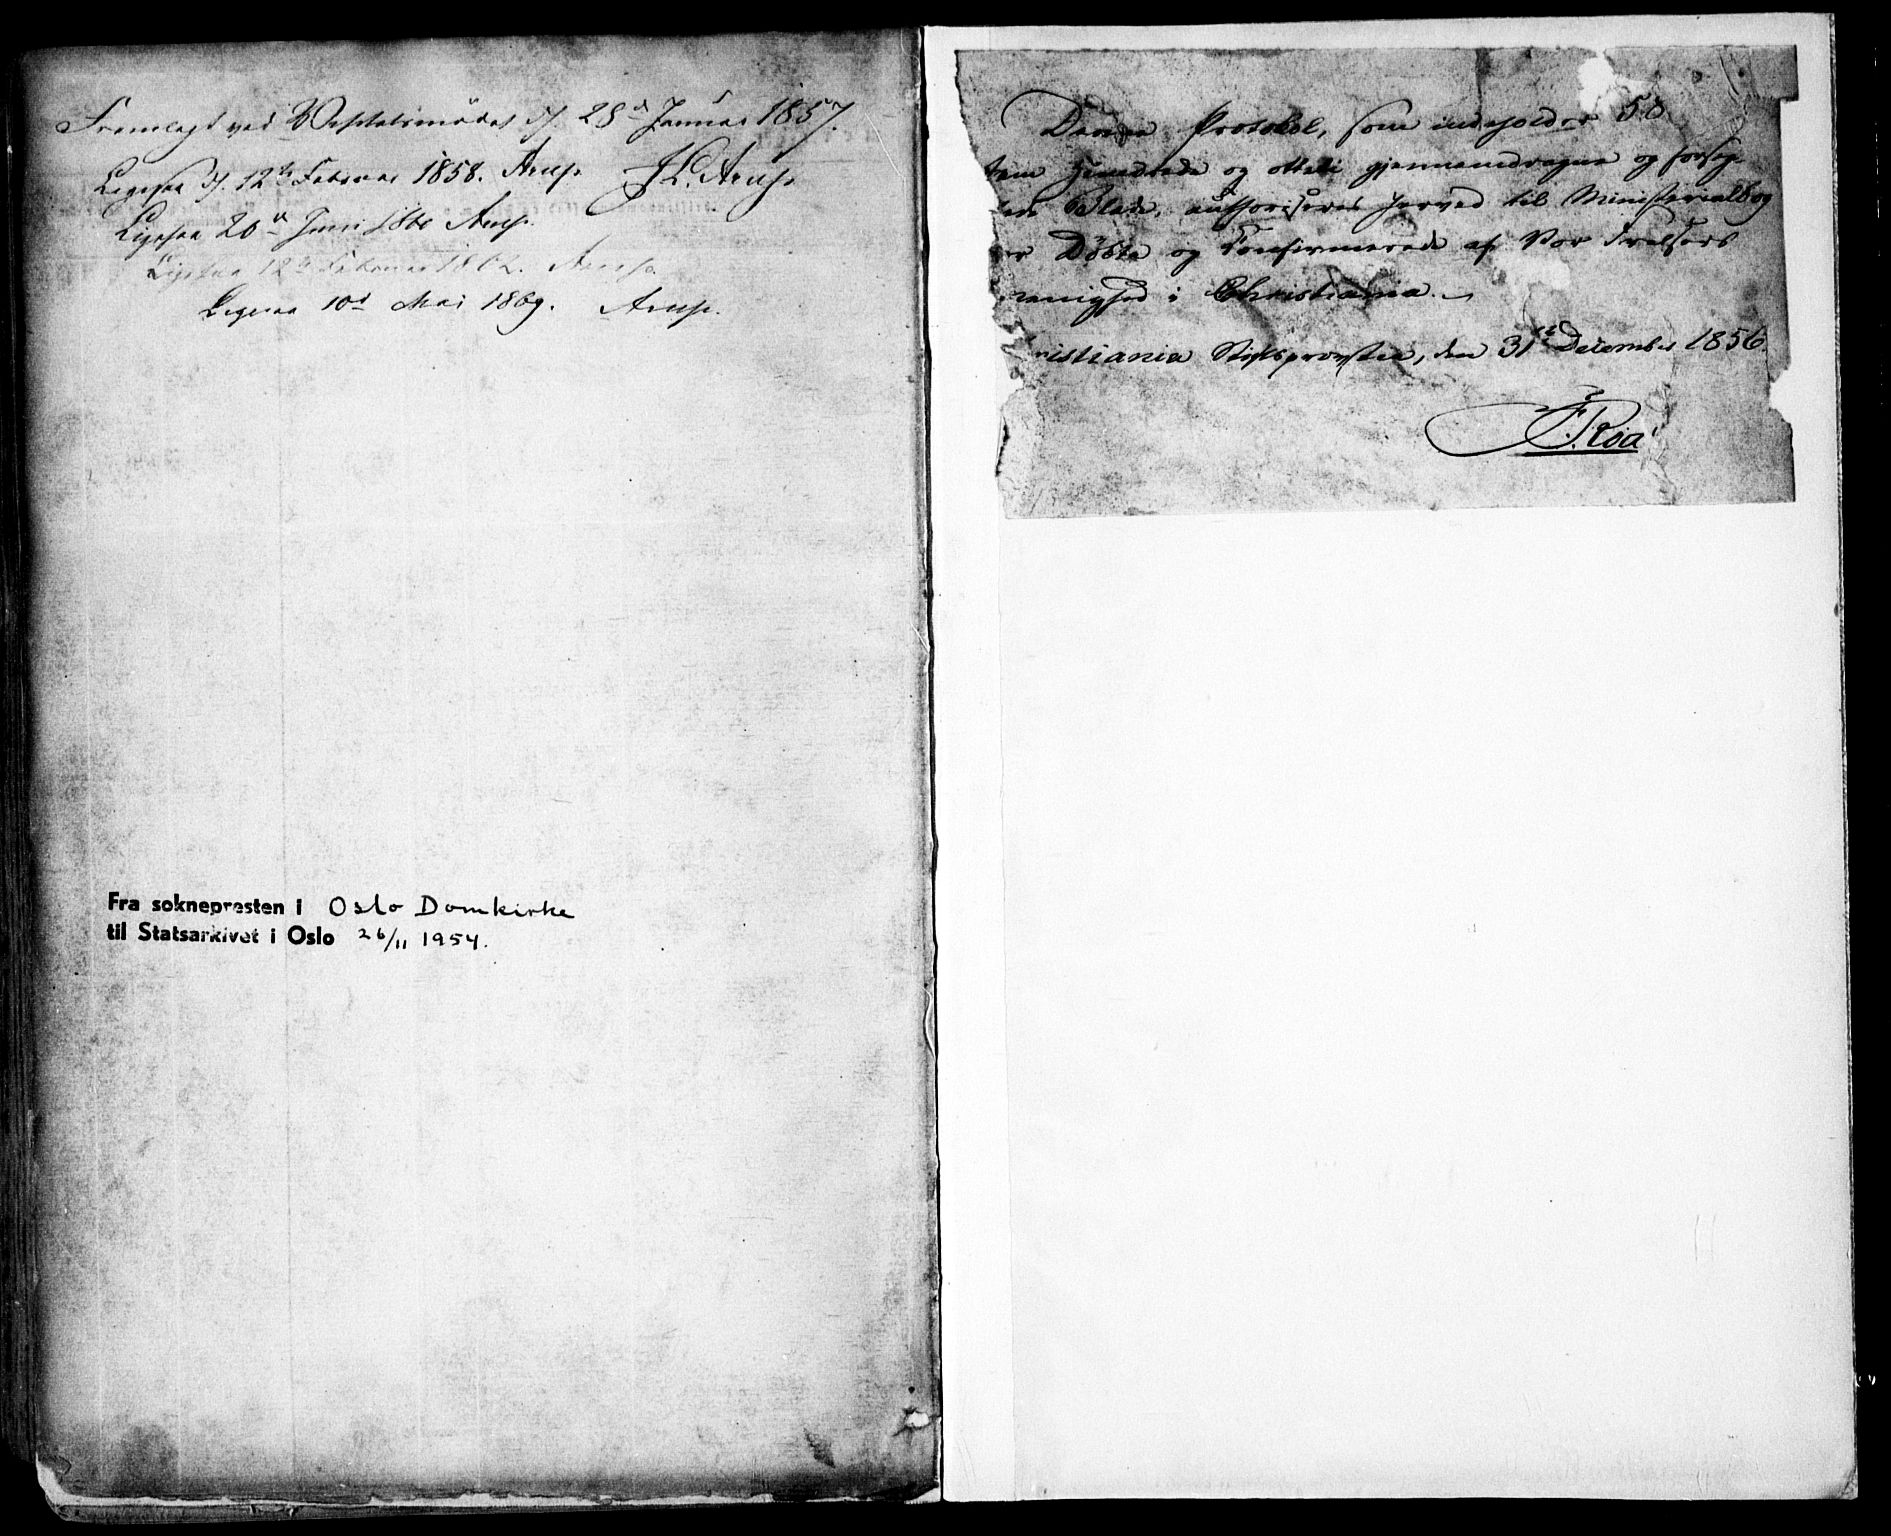 Fremlagt ved Visitatsmødet d. 28d Januar 1857.
J L. Arup.
Ligesaa d. 12te Februar 1858. Arup.
Ligesaa 20d Juni 1860 Arup.
Ligesaa 12te Februar 1862. Arup.
Ligesaa 10d Mai 1869. Arup.
Fra soknepresten i Oslo Domkirke
til Statsarkivet i Oslo 26/11 1954.
Denne Protokol, som indeholder 58
fem Hundrede og otteti gjennemdragne og forseg-
Blade, authoriseres herved til Ministerialbog
Døbte og Confirmerede af Vor Frelsers
Menighed i Christiania.
ristiania Stiftsprovstie, den 31te December 1856.